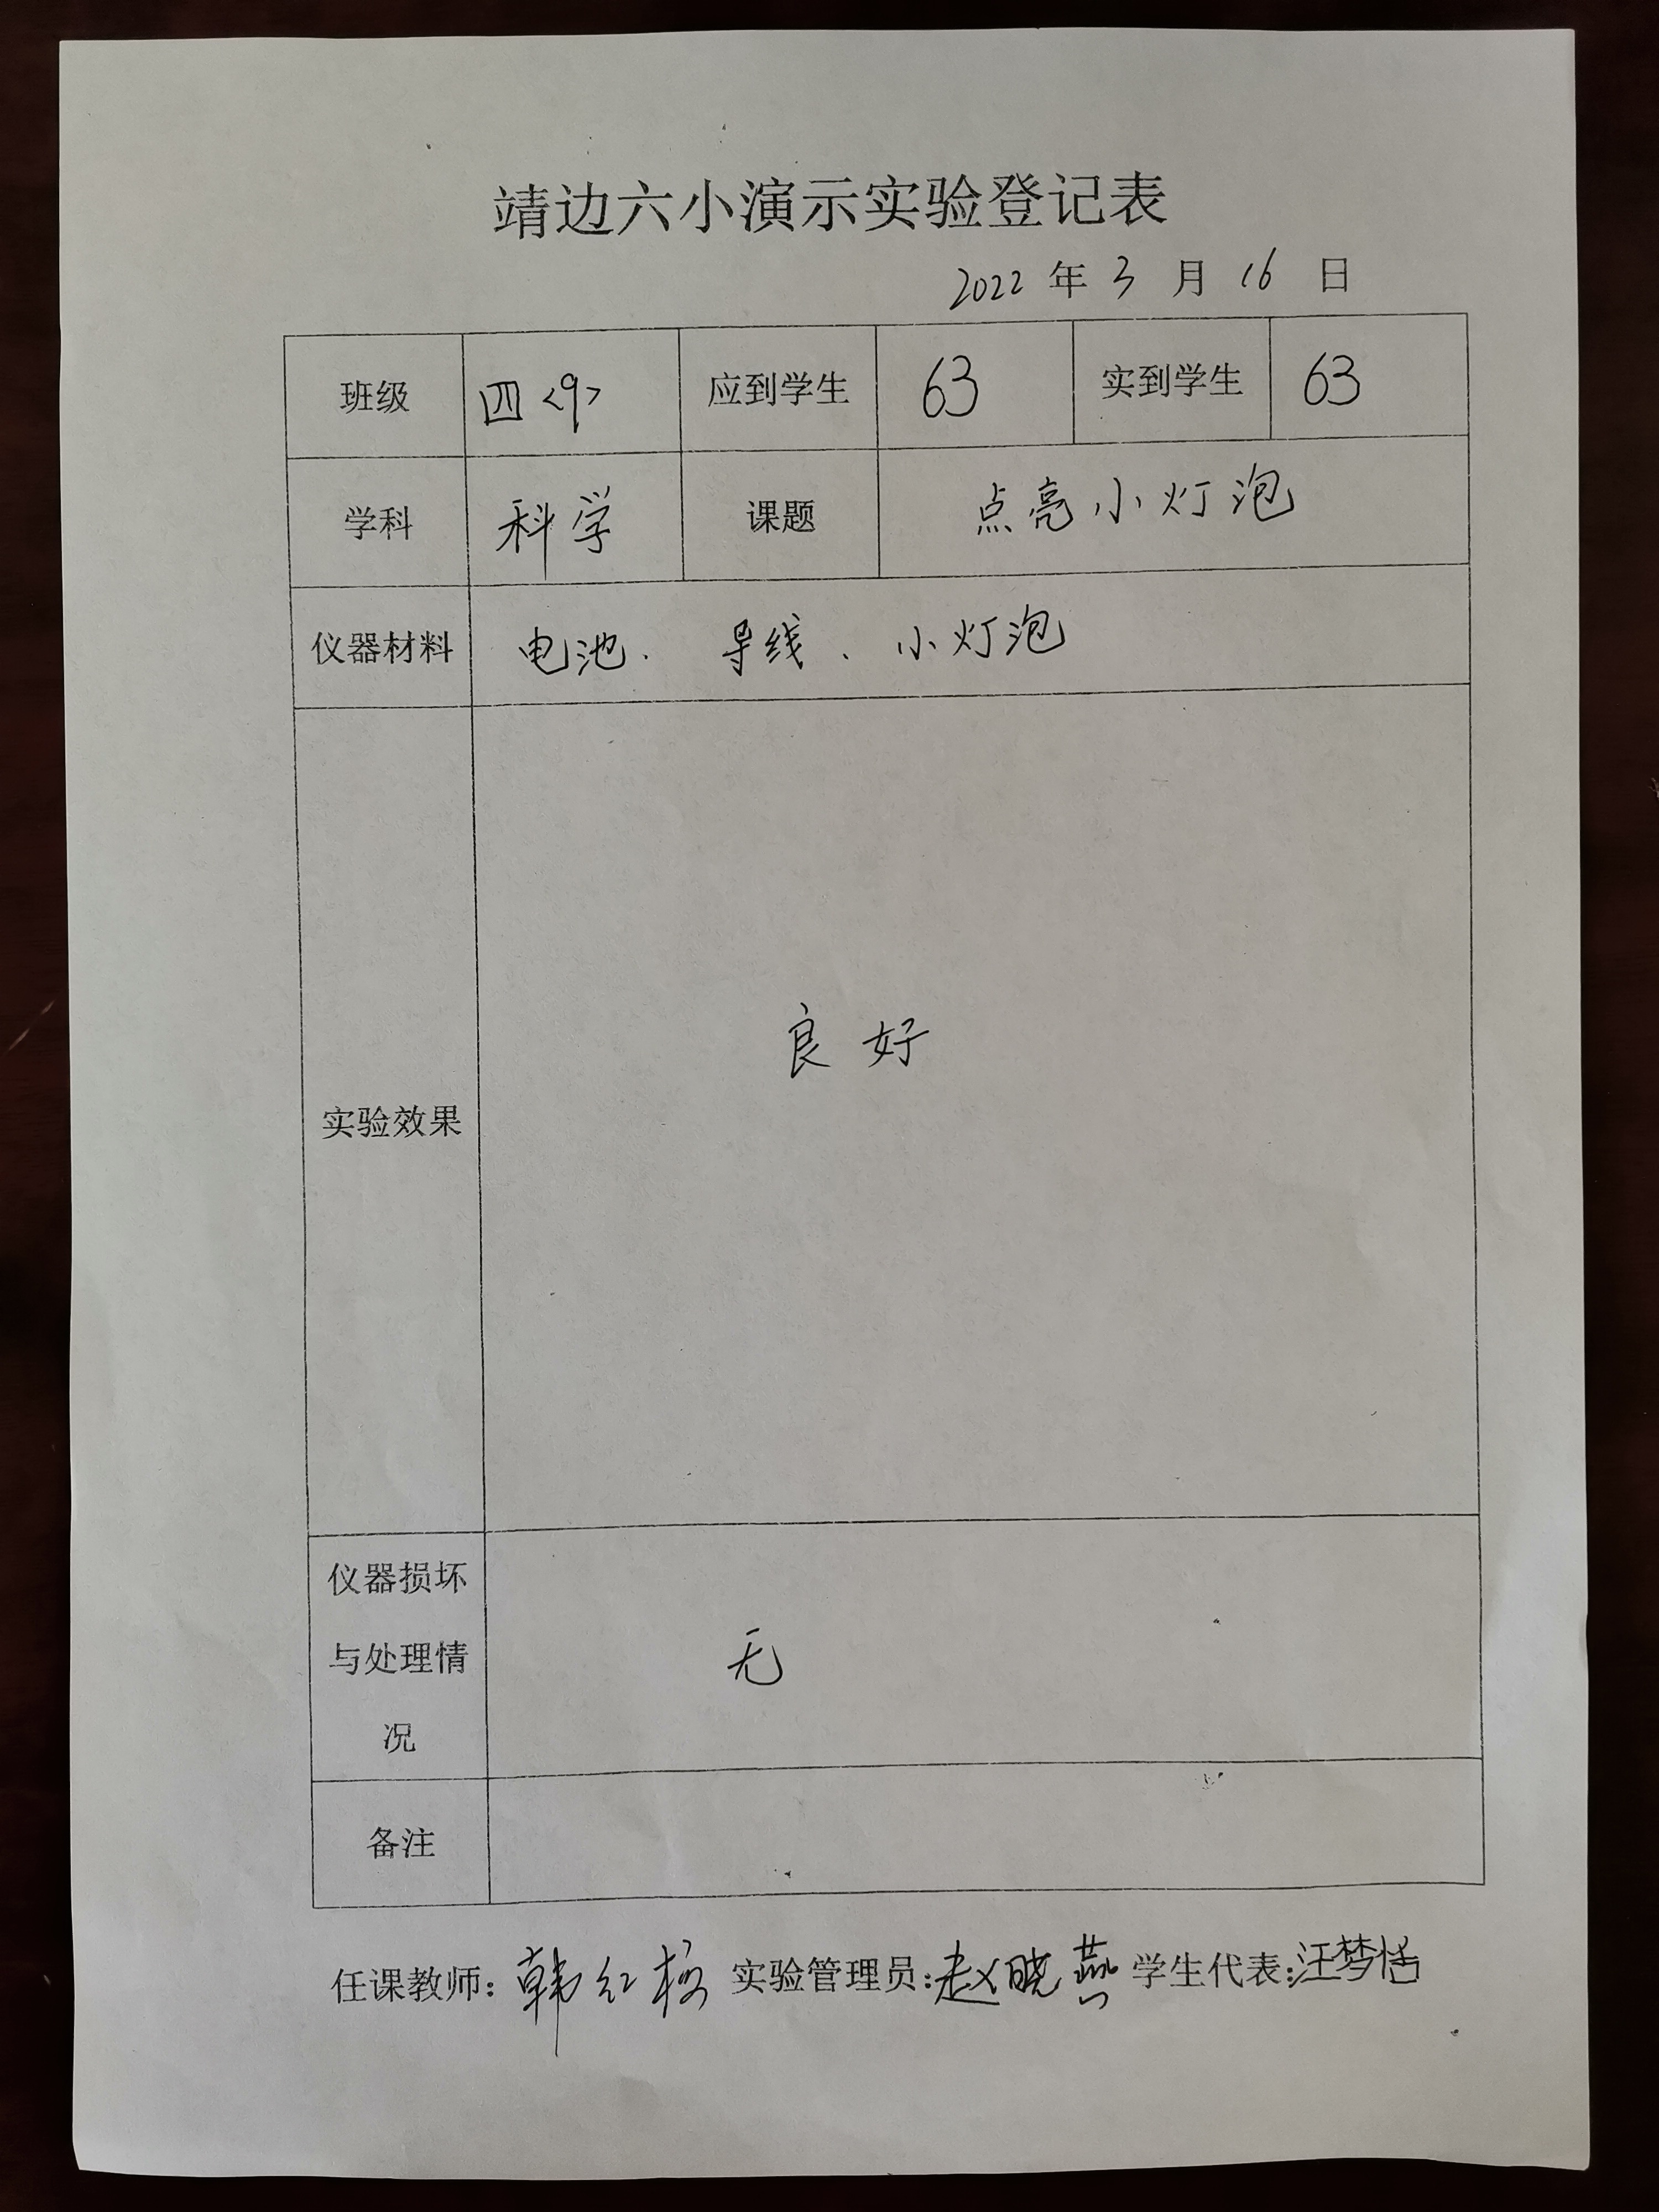 靖边六小演示实验登记表
2022 年 3 月 16 日
班级 四<9> 应到学生 63 实到学生 63
学科 科学 课题 点亮小灯泡
仪器材料 电池、导线、小灯泡
实验效果 良好
仪器损坏
与处理情 无
况
备注
任课教师：韩红梅 实验管理员：赵晓燕 学生代表：汪梦恬